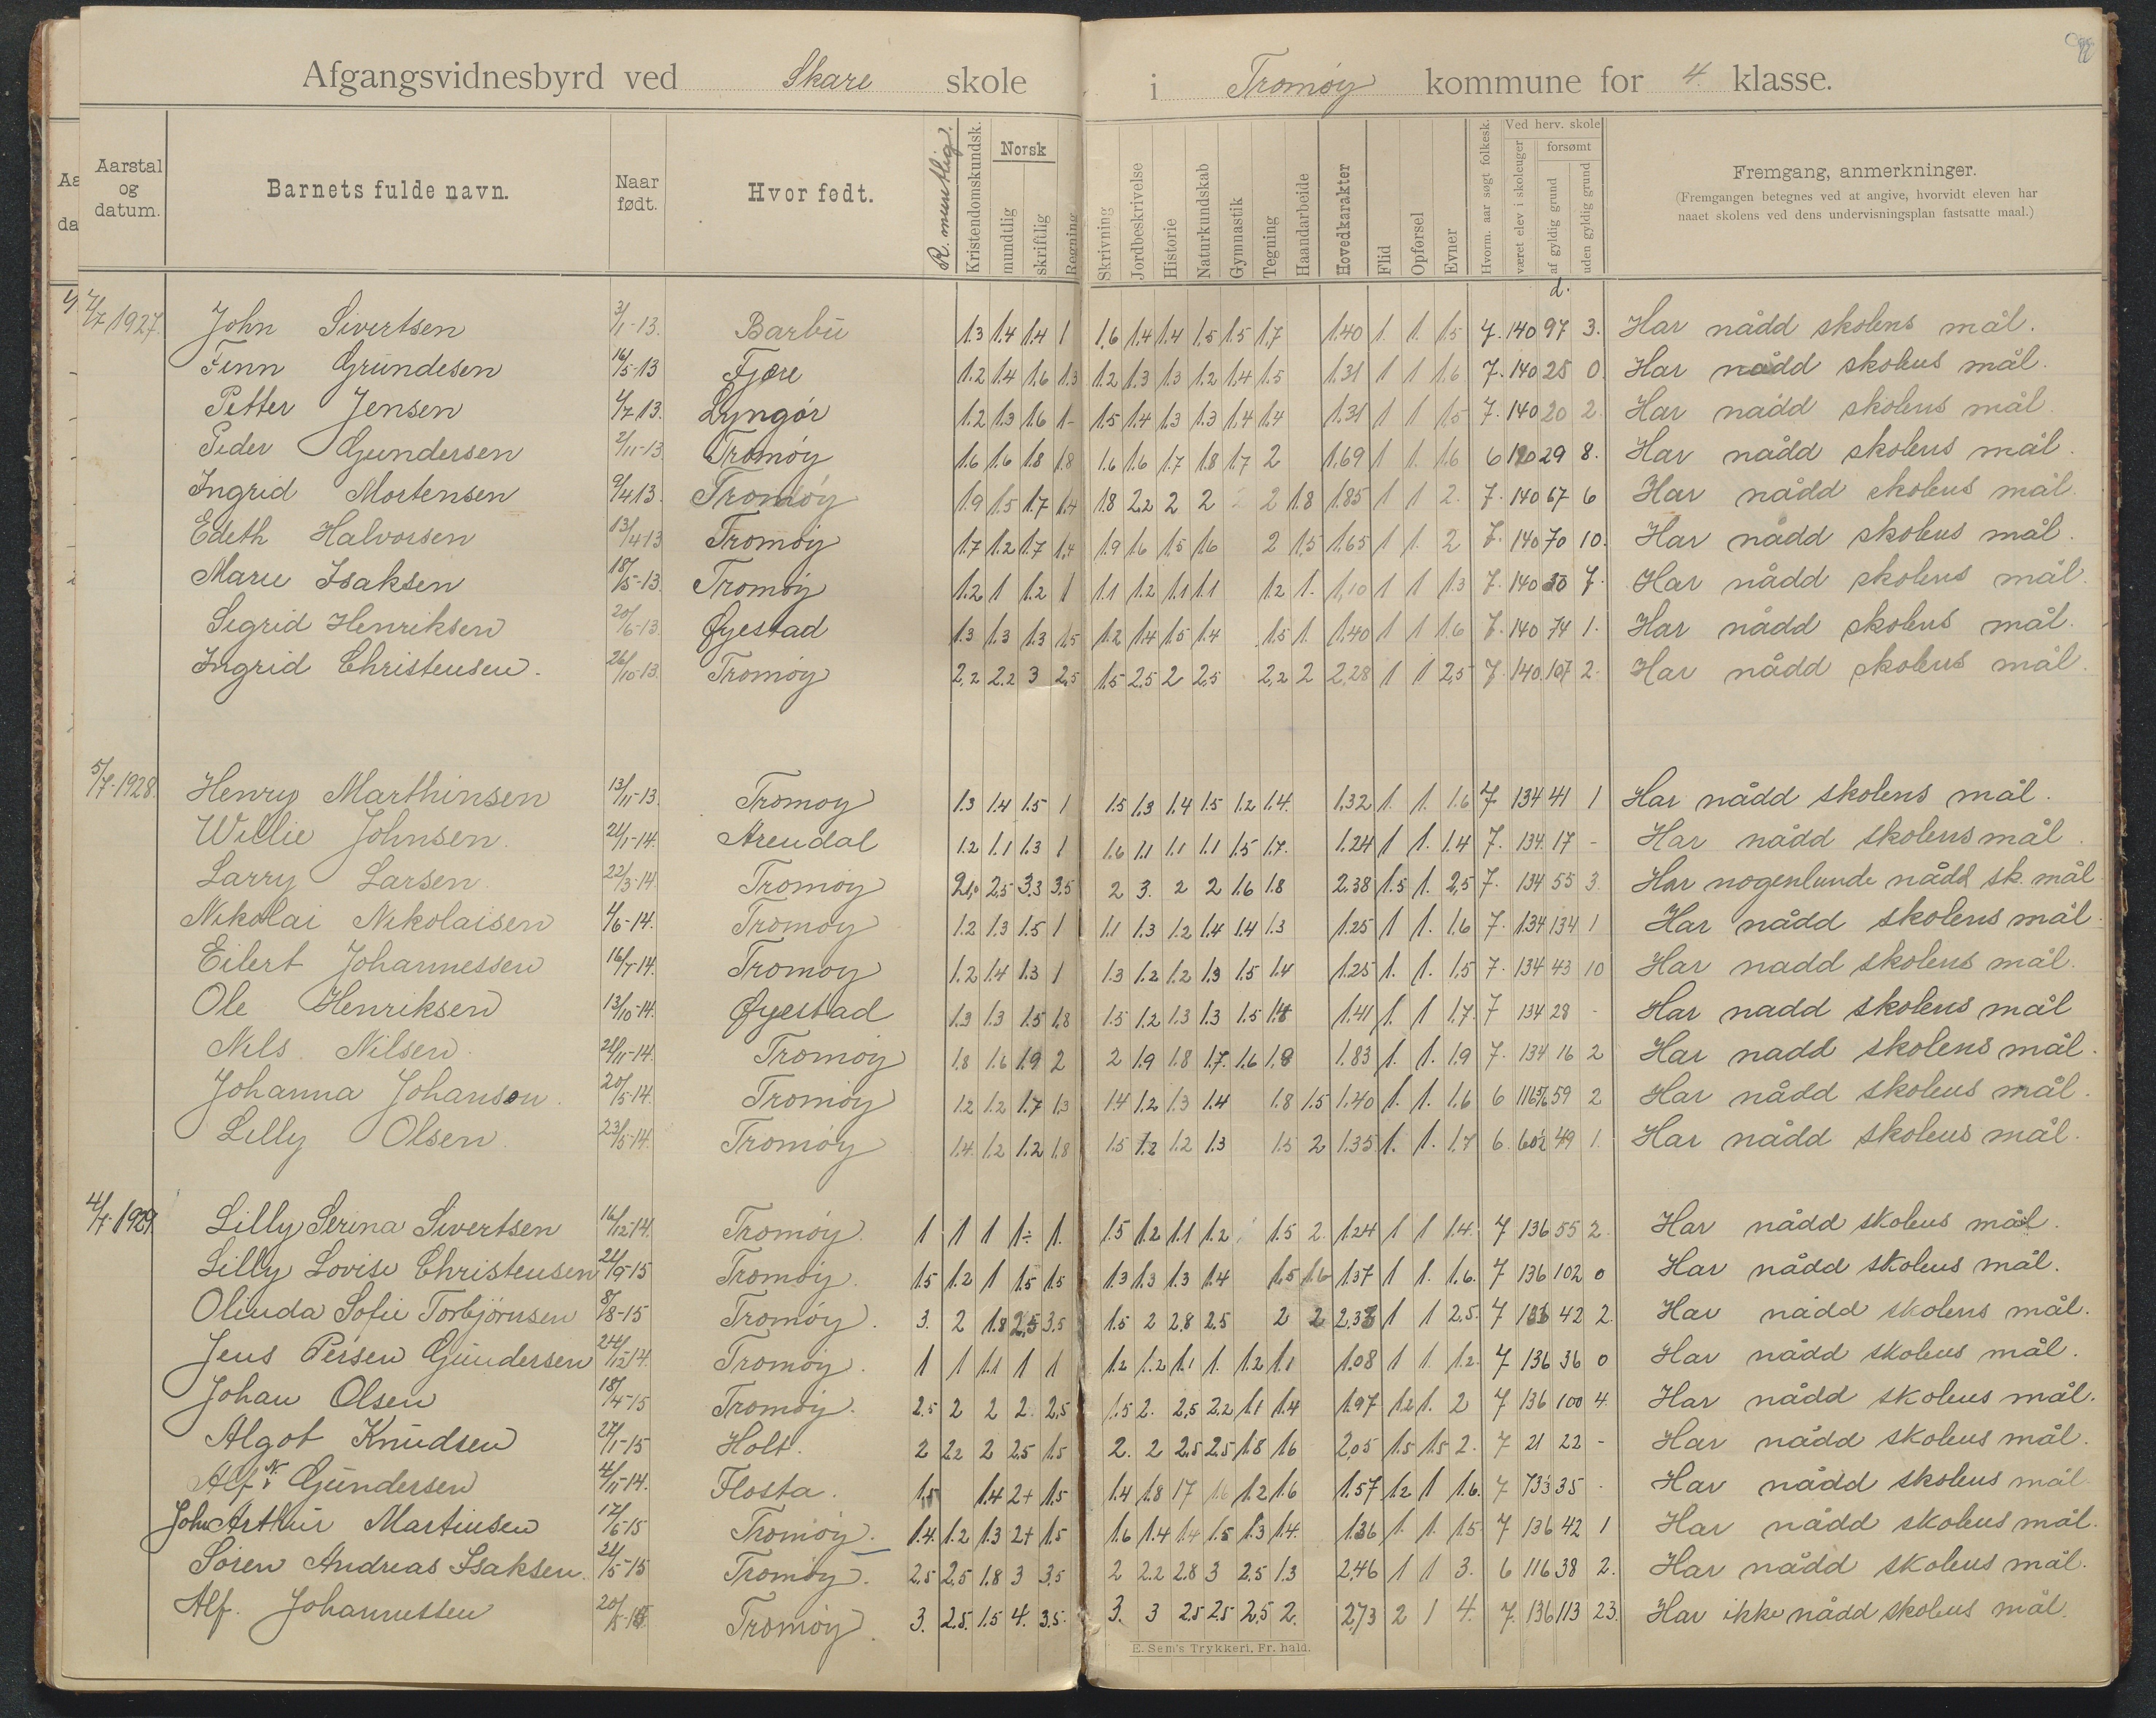 Afgangsvidnesbyrd ved Skare skole i Tromøy kommune for 4. klasse.
Aarstal og datum. Barnets fulde navn. Naar født. Hvor født. R. muntlig. Kristendomskundsk. Norsk mundtlig skriftlig Regning Skrivning Jordbeskrivelse Historie Naturkundskab Gymnastik Tegning Haandarbeide Hovedkarakter Flid Opførsel Evner Hvorm. aar søgt folkesk. Ved herv. skole været elev i skoleuger forsømt af gyldig grund uden gyldig grund Fremgang, anmerkninger.
(Fremgangen betegnes ved at angive, hvorvidt eleven har
naaet skolens ved dens undervisningsplan fastsatte maal.)
d.
1927. John Sivertsen 3/1-13. Barbu 1.3 1.4 1.4 1 1.6 1.4 1.4 1.5 1.5 1.7 1.40 1. 1. 1.5 7. 140 97 3. Har nådd skolens mål.
Finn Grundesen 16/5-13 Fjære 1.2 1.4 1.6 1.3 1.2 1.3 1.3 1.2 1.4 1.5 1.31 1 1 1.6 7. 140 25 0. Har nådd skolens mål.
Petter Jensen 4/7 13. Lyngør 1.2 1.3 1.6 1- 1.5 1.4 1.3 1.3 1.4 1.4 1.31 1 1 1.5 7. 140 20 2. Har nådd skolens mål.
Peder Gundersen 2/11-13 Tromøy 1.6 1.6 1.8 1.8 1.6 1.6 1.7 1.8 1.7 2 1.69 1 1. 1.6 6 120 29 8. Har nådd skolens mål.
Ingrid Mortensen 9/4 13. Tromøy 1.9 1.5 1.7 1.4 1.8 2.2 2 2 2 2 1.8 1.85 1 1 2. 7. 140 67 6 Har nådd skolens mål.
Edeth Halvorsen 13/4-13 Tromøy 1.7 1.2 1.7 1.4 1.9 1.6 1.5 1.6 2 1.5 1.65 1 1. 2 7. 140 70 10. Har nådd skolens mål.
Marie Isaksen 18/5-13. Tromøy 1.2 1 1.2 1 1.1 1.2 1.1 1.1 1.2 1. 1.10 1 1 1.3 7. 140 30 7. Har nådd skolens mål.
Sigrid Henriksen 20/6-13. Øyestad 1.3 1.3 1.3 1.5 1.2 1.4 1.5 1.4 1.5 1. 1.40 1 1 1.6 7. 140 74 1. Har nådd skolens mål.
Ingrid Christensen. 26/10-13. Tromøy 2.2 2.2 3 2.5 1.5 2.5 2 2.5 2.2 2 2.28 1 1 2.5 7. 140. 107 2. Har nådd skolens mål.
5/7-1928. Henry Marthinsen 13/11-13. Tromøy 1.3 1.4 1.5 1 1.5 1.3 1.4 1.5 1.2 1.4. 1.32 1. 1. 1.6 7 134 41 1 Har nådd skolens mål.
Willie Johnsen. 21/1-14. Arendal 1.2 1.1 1.3 1 1.6 1.1 1.1 1.1 1.5 1.7. 1.24 1 1. 1.4 7. 134. 17 - Har nådd skolens mål.
Larry Larsen. 22/3-14. Tromøy 2.5 3.3 3.5 2 3. 2 2 1.6 1.8 2.38 1.5 1. 2.5 7. 134 55 3. Har nogenlunde nådd sk. mål
Nikolai Nikolaisen 4/6-14. Tromøy 1.2 1.3 1.5 1 1.1 1.3 1.2 1.4 1.4 1.3 1.25 1 1. 1.6 7. 134 134 1 Har nådd skolens mål.
Eilert Johannessen 16/7-14. Tromøy 1.2 1.4 1.3 1 1.3 1.2 1.2 1.3 1.5 1.4 1.25 1. 1. 1.5 7. 134 43 10 Har nadd skolens mål.
Ole Henriksen 13/10-14. Øyestad 1.3 1.3 1.5 1.8 1.5 1.2 1.3 1.3 1.5 1.8 1.41 1. 1 1.7. 7 134 28 - Har nadd skolens mål
Nils. Nilsen. 21/11-14. Tromøy 1.8 1.6 1.9 2 2 1.9 1.8 1.7. 1.6 1.8 1.83 1. 1. 1.9 7. 134 16 2 Har nadd skolens mål.
Johanna Johanson. 20/5-14. Tromøy 1.2 1.2 1.7 1.3 1.4 1.2 1.3 1.4 1.8 1.5 1.40 1. 1. 1.6 6 59 2 Har nådd skolens mål.
Lilly Olsen. 23/5-14. Tromøy 1.4. 1.2 1.2 1.8 1.5 1.2 1.2 1.3 1.5 2 1.35 1. 1. 1.7 6. 49 1. Har nådd skolens mål.
4/7-1929 Lilly Serina Sivertsen 16/12-14. Tromøy. 1 1 1 1÷ 1. 1.5 1.2 1.1 1.2 1.5 2. 1.24 1 1 1.4. 7 136 55 2. Har nådd skolens mål.
Lilly Lovise Christensen 21/9-15 Tromøy. 1.5 1.2 1 1.5 1.5 1.3 1.3 1.3 1.4 1.5 1.6 1.37 1 1. 1.6. 7 136 102 0 Har nådd skolens mål.
Olinda Sofie Torbjörnsen 8/8-15 Tromøy. 3. 2 1.8 2.5 3.5 1.5 2 2.8 2.5 2 2 1 1 2.5. 7 136 42 2. Har nådd skolens mål.
Jens Persen Gundersen 24/12-14. Tromøy. 1 1 1.1 1 1 1.2 1.2 1.1 1. 1.2 1.1 1.08 1 1. 1.2. 7 136 36 0 Har nådd skolens mål.
Johan Olsen 18/4-15 Tromøy. 2.5 2 2 2. 2.5 1.5 2. 2.5 2.2 1.1 1.4 1.97 1.2 1. 2 7 136 100 4. Har nådd skolens mål.
Algot Knudsen 27/1-15 Holt. 2 2.2 2 2.5 1.5 2. 2 2.5 2.5 1.8 1.6 2.05 1.5 1.5 2. 7 21 22 - Har nådd skolens mål.
Alf N. Gundersen 4/11-14. Flosta. 1.5 1.4 2+ 1.5 1.4 1.8 1.7 1.6 1.2 1.6 1.57 1.2 1 1.6. 7 133 35 - Har nådd skolens mål.
John Arthur Martinsen 17/6-15 Tromøy. 1.4. 1.2 1.3 2+ 1.5 1.6 1.4 1.4 1.5 1.3 1.4. 1.36 1. 1. 1.5 7 136 42 1 Har nådd skolens mål.
Sören Andreas Isaksen. 21/5-15 Tromøy. 2.5 2.5 1.8 3 3.5 2 2.2 2.8 3 2.5 1.3 2.46 1 1 3. 6 116 38 2. Har nådd skolens mål.
Alf. Johannessen Tromøy. 3. 2.5. 1.5 4. 3.5. 3. 3 2.5 2.5 2.5 2. 2.73 2 1 4. 7. 136 113 23. Har ikke nådd skolens mål.
E. Sem's Trykkeri, Fr. hald.